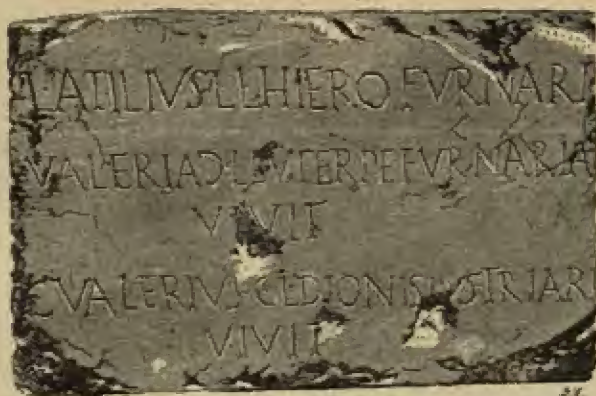 L·ATILIVS·L·L·HIERO FVRNARI
VALERIA D·L·EVTERPE FVRNARIA
VIVIT
C·VALERIVS·C·L·DIONISIVS TRIARI
VIVIT